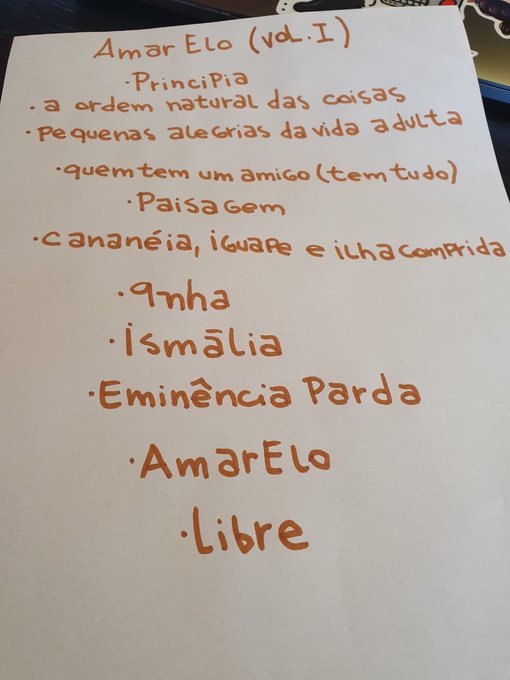 Amar Elo (vol. I)
·Principia
·a ordem natural das coisas
·pequenas alegrias da vida adulta
·quem tem um amigo (tem tudo)
·Paisagem
·cananéia, iguape e ilha comprida
·9nha
·ismália
·Eminência Parda
·AmarElo
·Libre